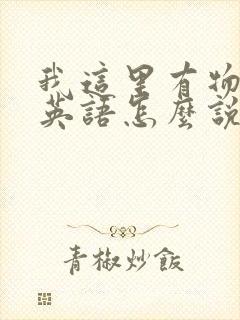 我這里有物
英語怎麼說
青椒炒飯